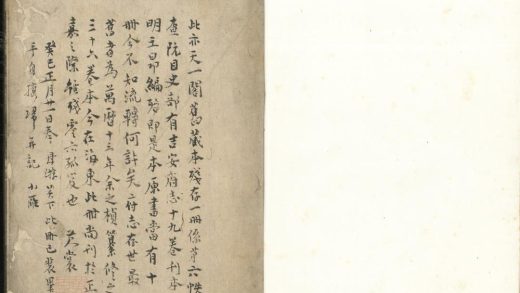 此亦天一閣舊藏本殘存一冊係第六帙
查阮目史部有吉安府志十九卷刊本
明王昂編即是本原書當有十
冊今不知流轉何許矣府志存世最
舊者為萬曆十三年余之楨纂修之
三十六卷本今在海東此冊尚刊於正
嘉之際雖殘零亦孤笈也
癸巳正月廿一日吳下此冊已裝畢
手自歸并記 小羅